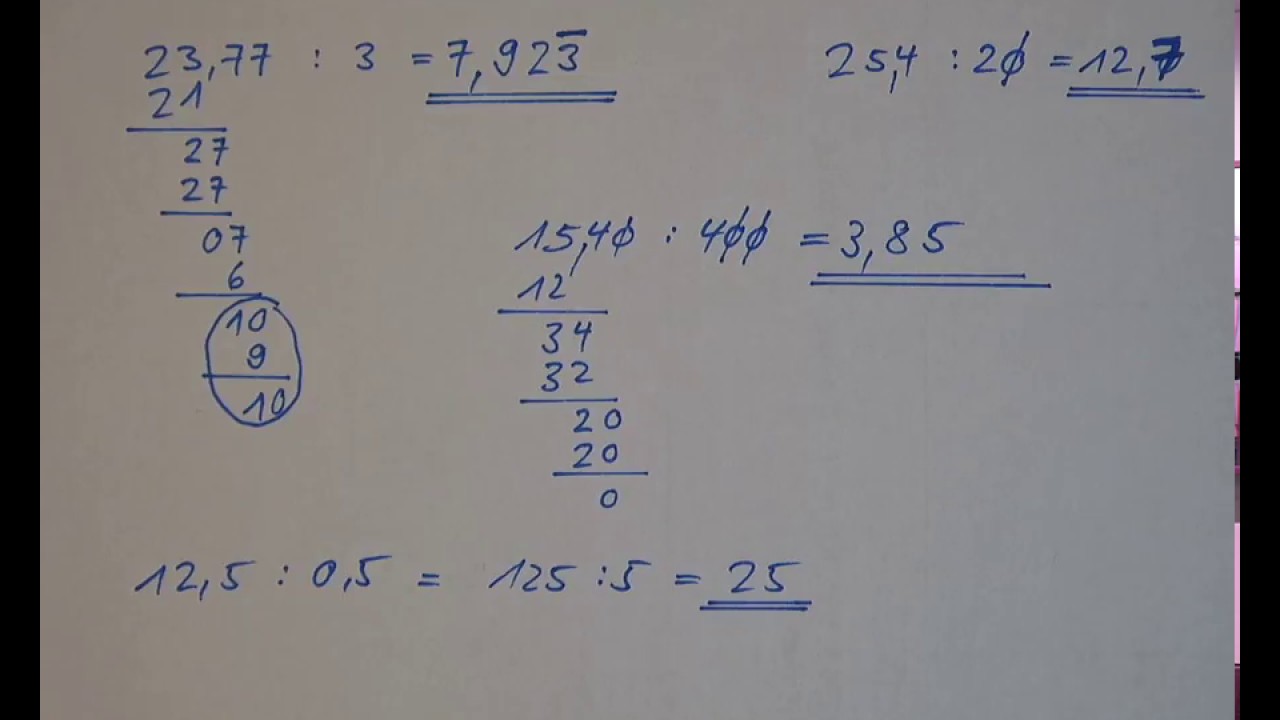 23,77 : 3 = 7,923̅
21
27
27
07
6
10
9
10
25,4 : 20 = 12,7
15,40 : 400 = 3,85
12
34
32
20
20
0
12,5 : 0,5 = 125 : 5 = 25